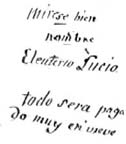 mirese bien
nombre
Eleuterio Lucio
todo sera paga
do muy en breve